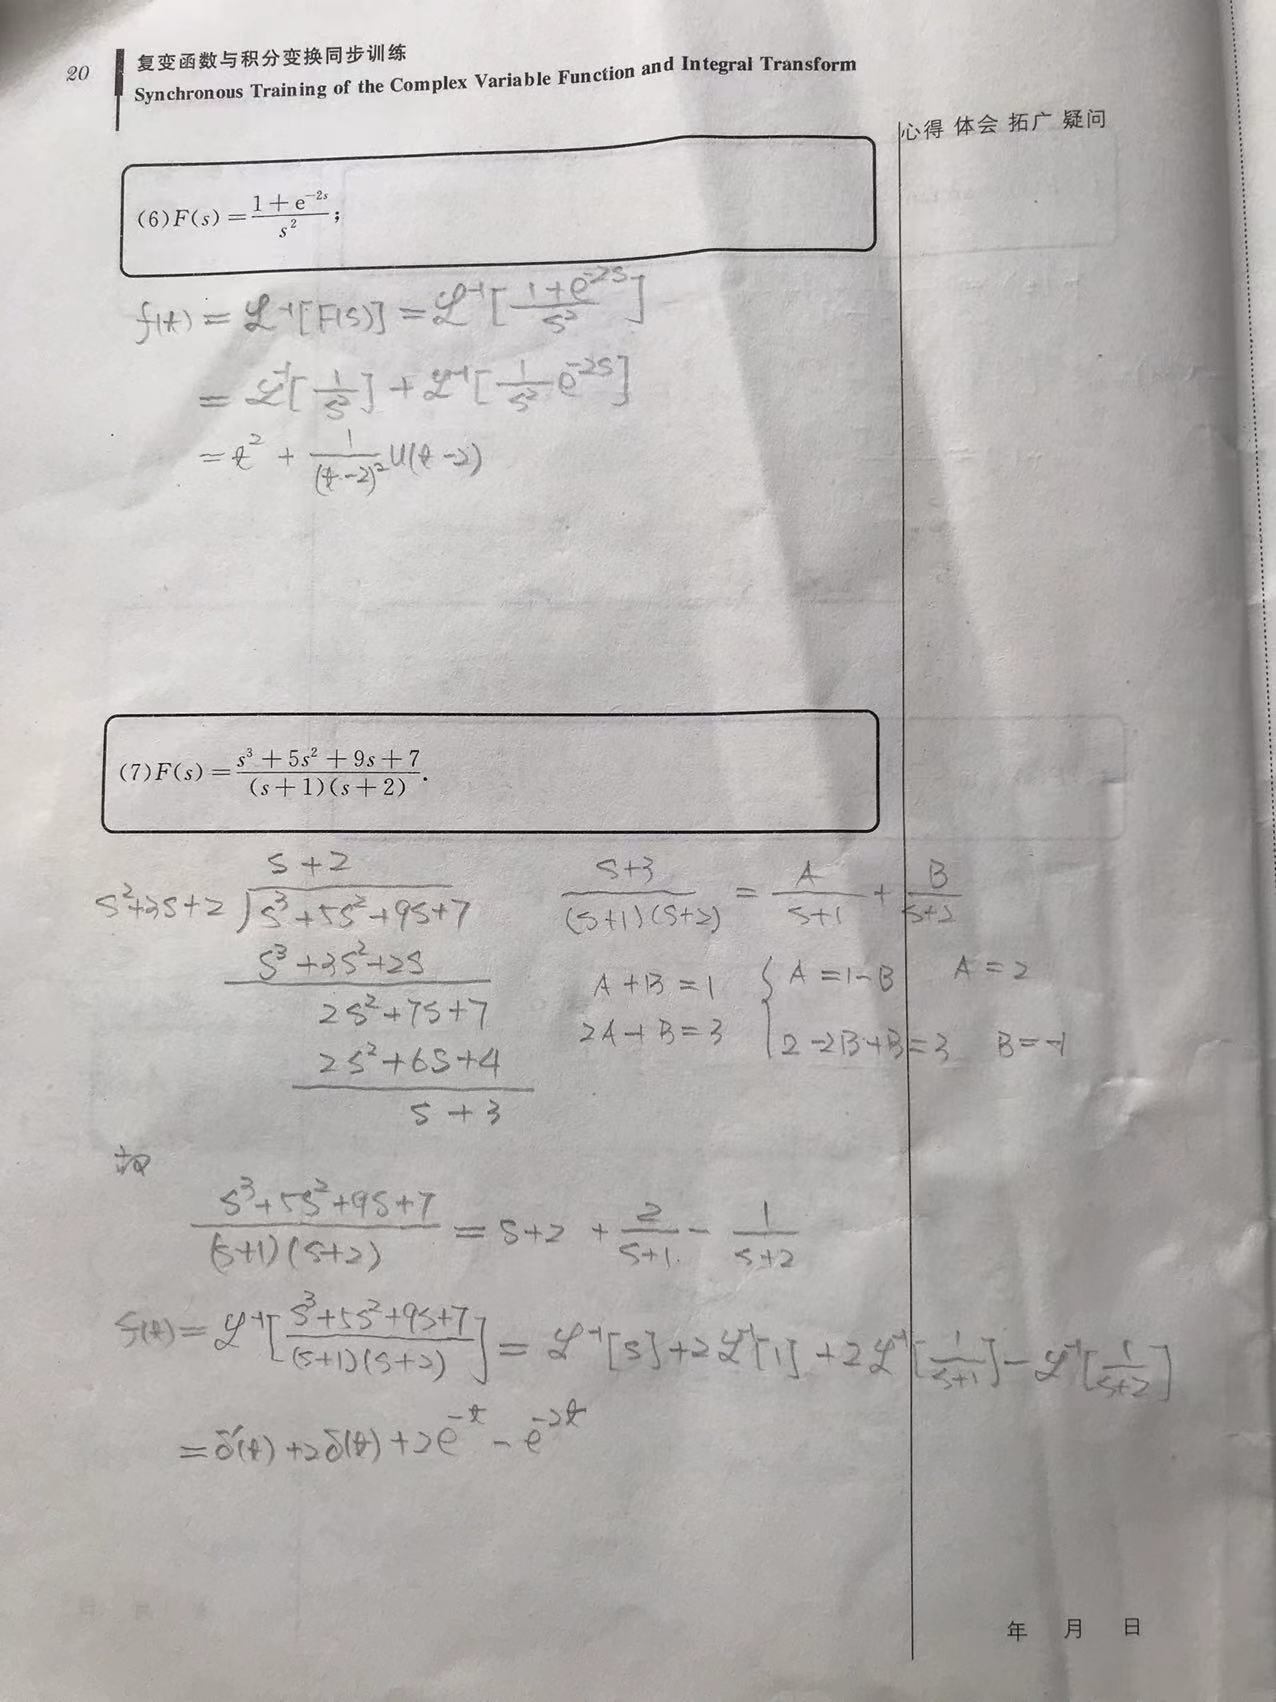 20
复变函数与积分变换同步训练
Synchronous Training of the Complex Variable Function and Integral Transform
心得 体会 拓广 疑问
(6) F(s) = \frac{1+e^{-2s}}{s^2};
f(t) = ℒ^{-1}[F(s)] = ℒ^{-1}[\frac{1+e^{-2s}}{s^2}]
= ℒ^{-1}[\frac{1}{s^2}] + ℒ^{-1}[\frac{1}{s^2}e^{-2s}]
= t^2 + \frac{1}{(t-2)^2}u(t-2)
(7) F(s) = \frac{s^3+5s^2+9s+7}{(s+1)(s+2)}.
s+2
s^2+3s+2 ) s^3+5s^2+9s+7
s^3+3s^2+2s
2s^2+7s+7
2s^2+6s+4
s+3
\frac{s+3}{(s+1)(s+2)} = \frac{A}{s+1} + \frac{B}{s+2}
A+B=1 { A=1-B A=2
2A+B=3 2-2B+B=3 B=-1
故
\frac{s^3+5s^2+9s+7}{(s+1)(s+2)} = s+2 + \frac{2}{s+1} - \frac{1}{s+2}
f(t) = ℒ^{-1}[\frac{s^3+5s^2+9s+7}{(s+1)(s+2)}] = ℒ^{-1}[s] + 2ℒ^{-1}[1] + 2ℒ^{-1}[\frac{1}{s+1}] - ℒ^{-1}[\frac{1}{s+2}]
= δ'(t) + 2δ(t) + 2e^{-t} - e^{-2t}
年 月 日